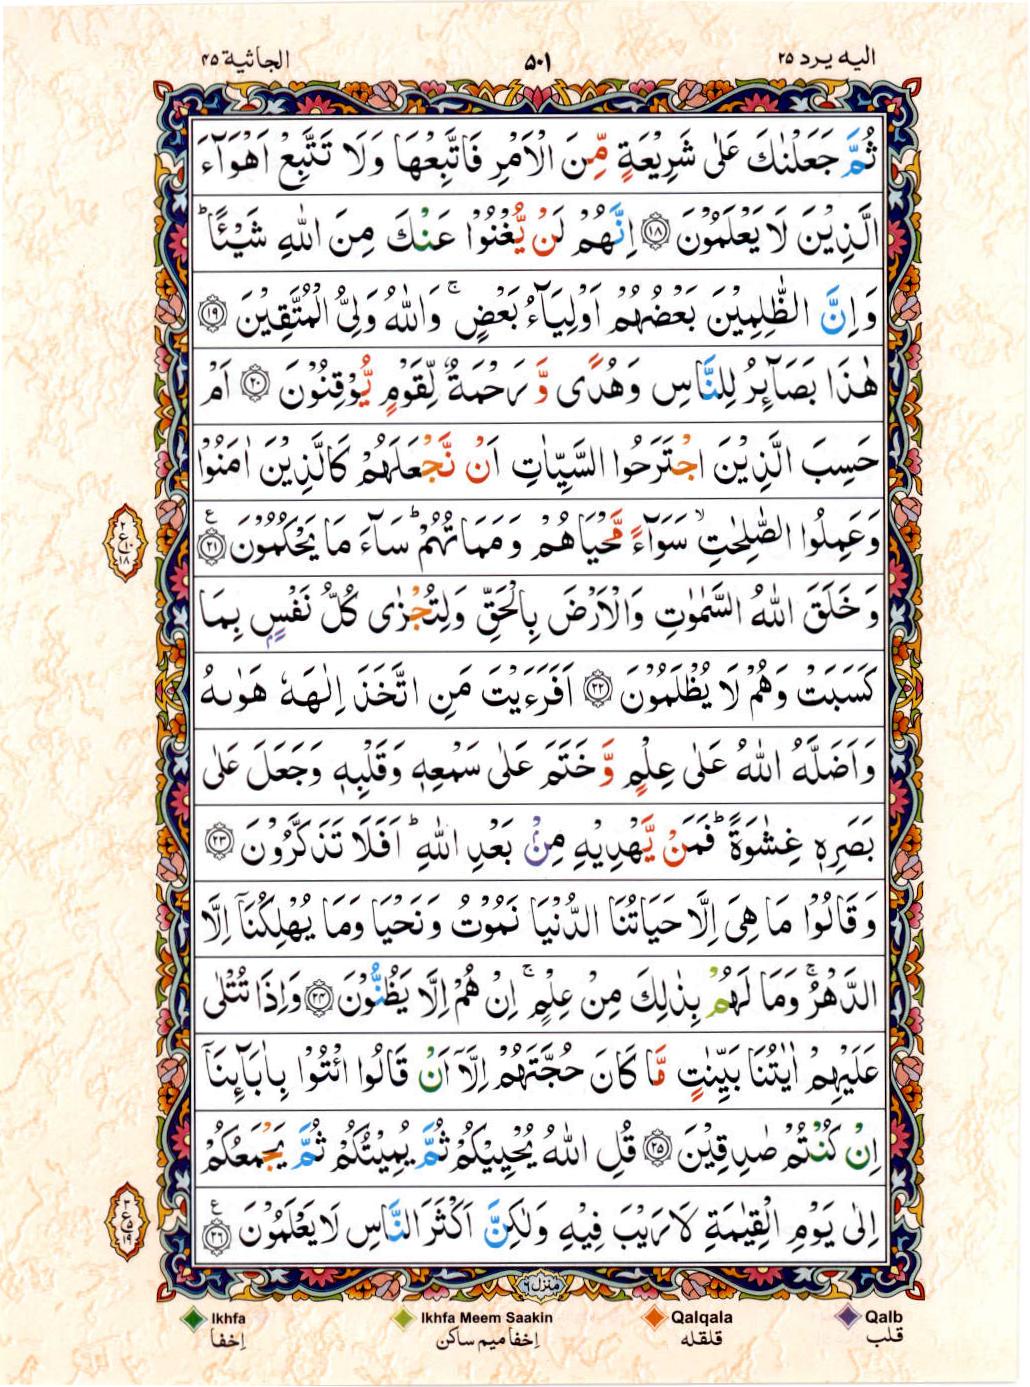 الجاثية ۴۵
۵۰۱
اليه يرد ۲۵
ثُمَّ جَعَلۡنٰكَ عَلٰى شَرِيۡعَةٍ مِّنَ الۡاَمۡرِ فَاتَّبِعۡهَا وَلَا تَتَّبِعۡ اَهۡوَآءَ
الَّذِيۡنَ لَا يَعۡلَمُوۡنَ ﴿۱۸﴾ اِنَّهُمۡ لَنۡ يُّغۡنُوۡا عَنۡكَ مِنَ اللّٰهِ شَيۡـًٔاؕ
وَاِنَّ الظّٰلِمِيۡنَ بَعۡضُهُمۡ اَوۡلِيَآءُ بَعۡضٍۚ وَاللّٰهُ وَلِىُّ الۡمُتَّقِيۡنَ ﴿۱۹﴾
هٰذَا بَصَآئِرُ لِلنَّاسِ وَهُدًى وَّرَحۡمَةٌ لِّقَوۡمٍ يُّوۡقِنُوۡنَ ﴿۲۰﴾ اَمۡ
حَسِبَ الَّذِيۡنَ اجۡتَرَحُوا السَّيِّاٰتِ اَنۡ نَّجۡعَلَهُمۡ كَالَّذِيۡنَ اٰمَنُوۡا
وَعَمِلُوا الصّٰلِحٰتِۙ سَوَآءً مَّحۡيَاهُمۡ وَمَمَاتُهُمۡؕ سَآءَ مَا يَحۡكُمُوۡنَ ﴿۲۱﴾ع
وَخَلَقَ اللّٰهُ السَّمٰوٰتِ وَالۡاَرۡضَ بِالۡحَقِّ وَلِتُجۡزٰى كُلُّ نَفۡسٍۢ بِمَا
كَسَبَتۡ وَهُمۡ لَا يُظۡلَمُوۡنَ ﴿۲۲﴾ اَفَرَءَيۡتَ مَنِ اتَّخَذَ اِلٰهَهٗ هَوٰٮهُ
وَاَضَلَّهُ اللّٰهُ عَلٰى عِلۡمٍ وَّخَتَمَ عَلٰى سَمۡعِهٖ وَقَلۡبِهٖ وَجَعَلَ عَلٰى
بَصَرِهٖ غِشٰوَةًؕ فَمَنۡ يَّهۡدِيۡهِ مِنۡۢ بَعۡدِ اللّٰهِؕ اَفَلَا تَذَكَّرُوۡنَ ﴿۲۳﴾
وَقَالُوۡا مَا هِىَ اِلَّا حَيَاتُنَا الدُّنۡيَا نَمُوۡتُ وَنَحۡيَا وَمَا يُهۡلِكُنَاۤ اِلَّا
الدَّهۡرُۚ وَمَا لَهُمۡ بِذٰلِكَ مِنۡ عِلۡمٍۚ اِنۡ هُمۡ اِلَّا يَظُنُّوۡنَ ﴿۲۴﴾ وَاِذَا تُتۡلٰى
عَلَيۡهِمۡ اٰيٰتُنَا بَيِّنٰتٍ مَّا كَانَ حُجَّتَهُمۡ اِلَّاۤ اَنۡ قَالُوا ائۡتُوۡا بِاٰبَآئِنَاۤ
اِنۡ كُنۡتُمۡ صٰدِقِيۡنَ ﴿۲۵﴾ قُلِ اللّٰهُ يُحۡيِيۡكُمۡ ثُمَّ يُمِيۡتُكُمۡ ثُمَّ يَجۡمَعُكُمۡ
اِلٰى يَوۡمِ الۡقِيٰمَةِ لَا رَيۡبَ فِيۡهِ وَلٰكِنَّ اَكۡثَرَ النَّاسِ لَا يَعۡلَمُوۡنَ ﴿۲۶﴾ع
منزل ۶
Ikhfa
Ikhfa Meem Saakin
Qalqala
Qalb
إخفا
إخفا ميم ساكن
قلقله
قلب